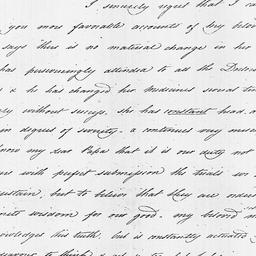 I sincerely regret that I ca
you more favorable accounts of my belov
says there is no material change in her
has perseveringly attended to all the Doctors
& he has changed her medicines several tim
ly without success. she has constant head-a
in degrees of severity. & continues very much
now my dear Papa that it is our duty not
us with perfect submission the trials we
sustain, but to believe that they are orde
nite wisdom for our good. my beloved
nowledges this truth, but is constantly actuated